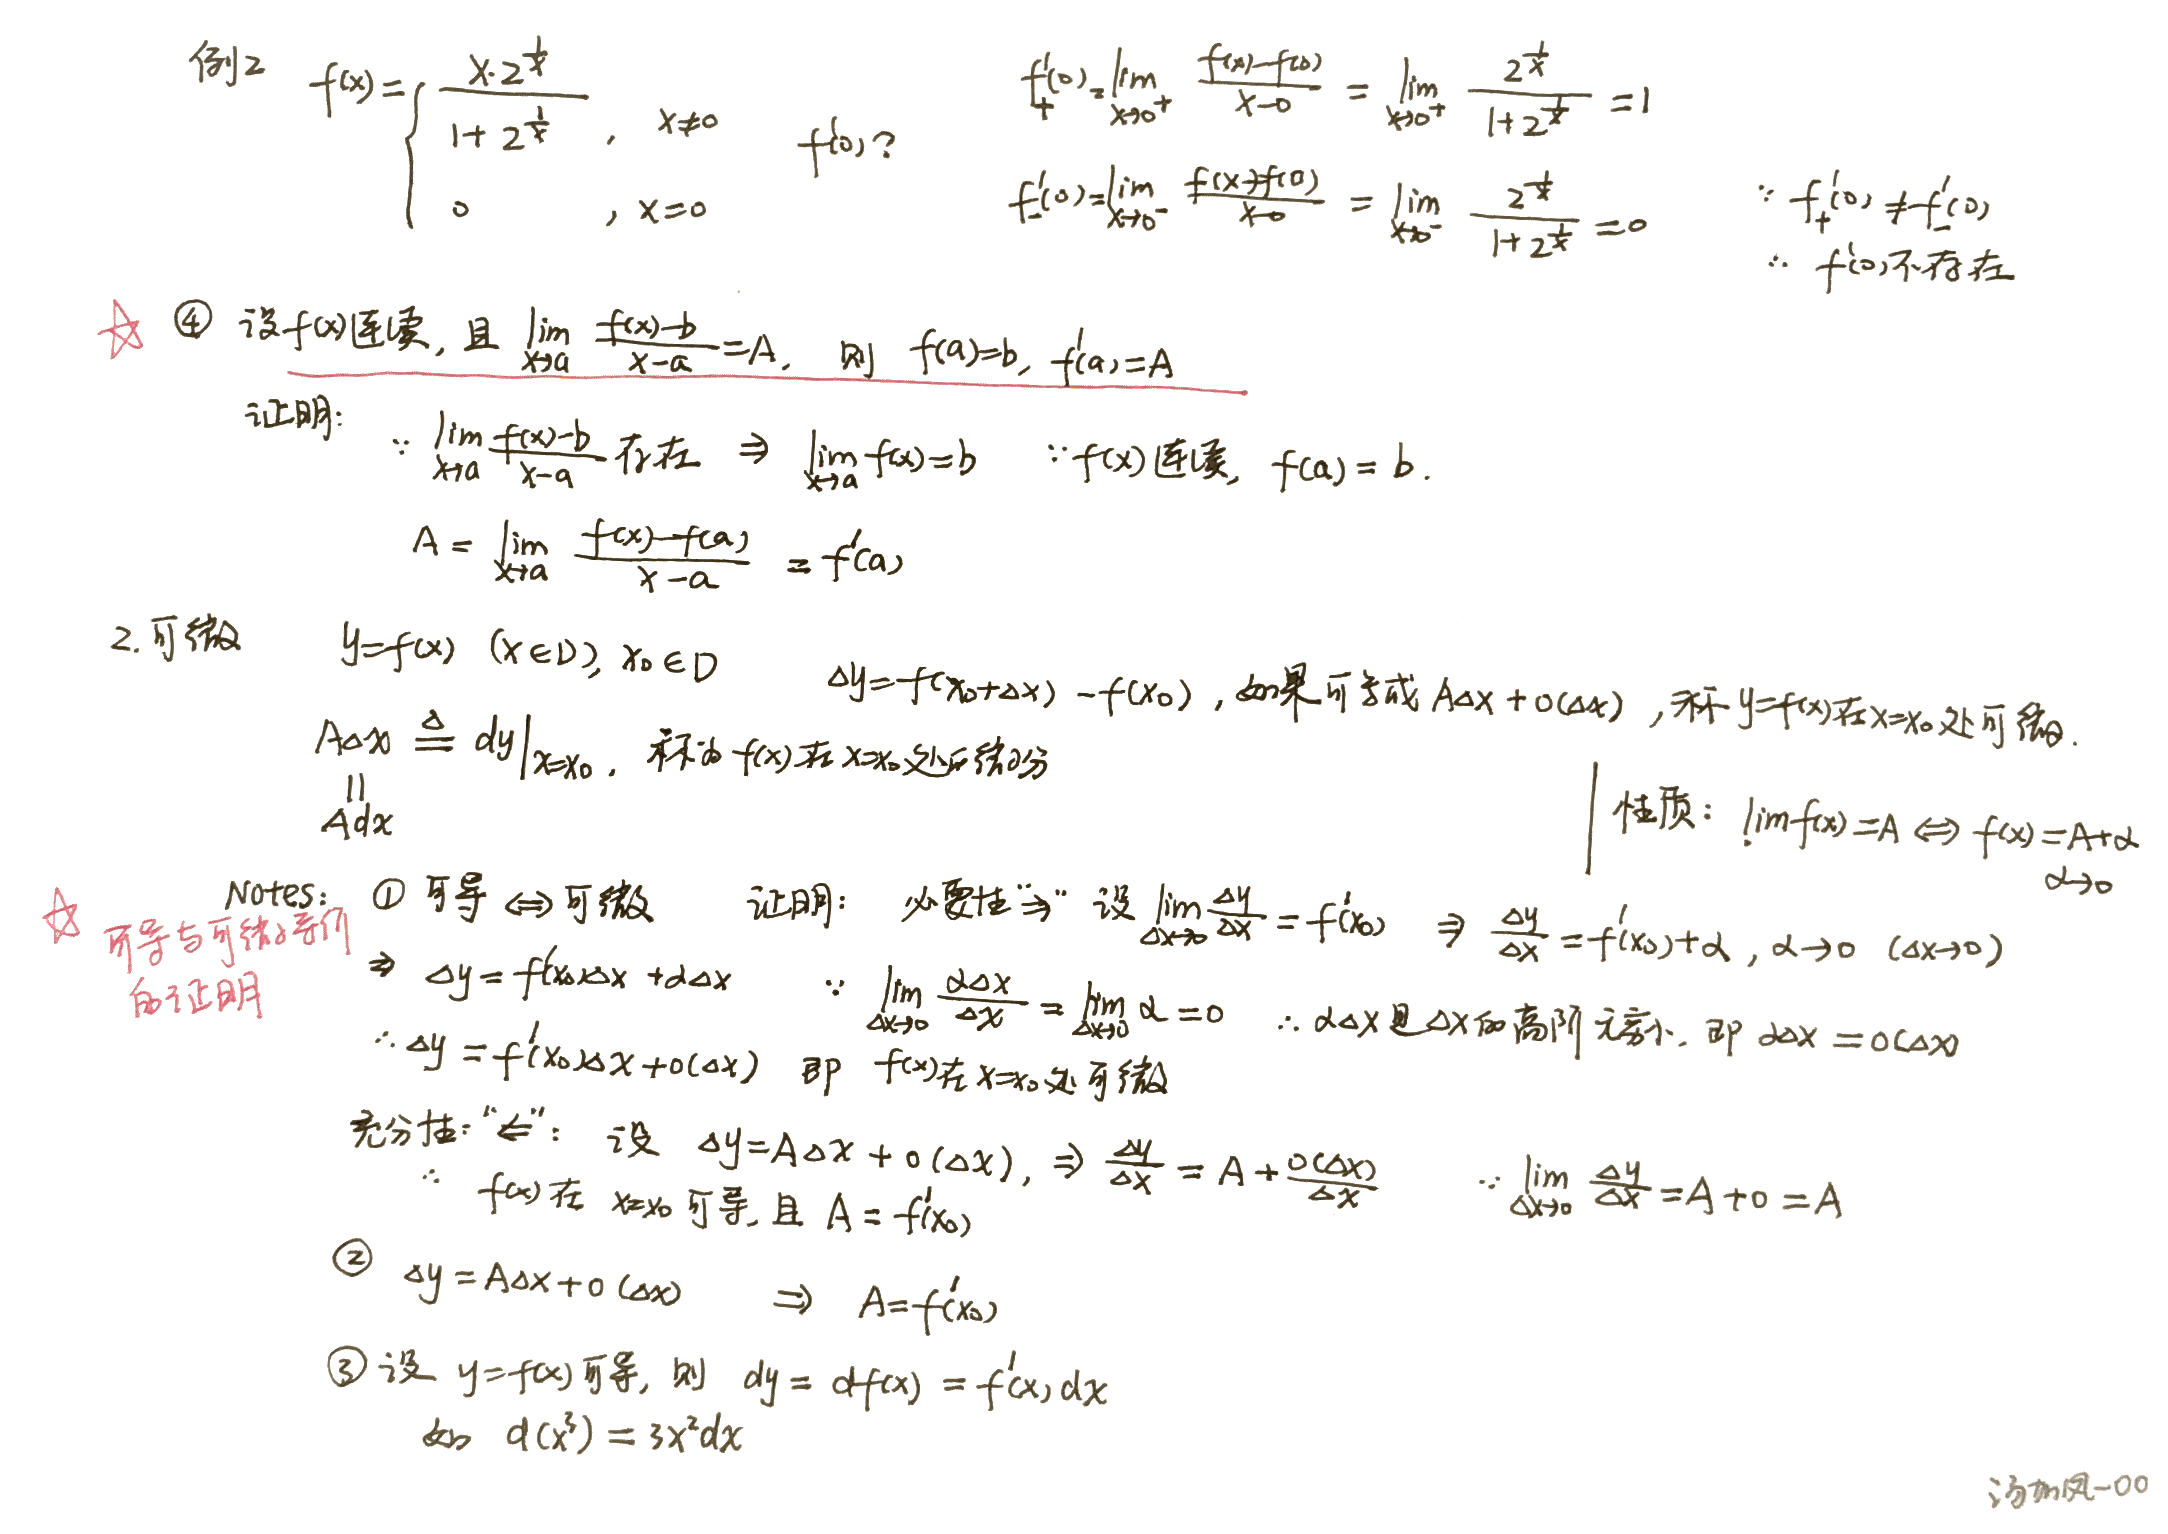 例2 f(x)={ x·2^(1/x) / (1+2^(1/x)) , x≠0
0 , x=0
f'(0)?
f'₊(0)=lim_{x→0⁺} (f(x)-f(0))/(x-0) = lim_{x→0⁺} 2^(1/x)/(1+2^(1/x)) =1
f'₋(0)=lim_{x→0⁻} (f(x)-f(0))/(x-0) = lim_{x→0⁻} 2^(1/x)/(1+2^(1/x)) =0
∵ f'₊(0)≠f'₋(0)
∴ f'(0)不存在
☆ ④ 设f(x)连续, 且 lim_{x→a} (f(x)-b)/(x-a)=A, 则 f(a)=b, f'(a)=A
证明: ∵ lim_{x→a} (f(x)-b)/(x-a) 存在 ⇒ lim_{x→a} f(x)=b ∵f(x)连续, f(a)=b.
A = lim_{x→a} (f(x)-f(a))/(x-a) = f'(a)
2.可微 y=f(x) (x∈D), x₀∈D Δy=f(x₀+Δx)-f(x₀), 如果可写成AΔx+o(Δx), 称y=f(x)在x=x₀处可微.
AΔx ≜ dy|_{x=x₀}, 称为f(x)在x=x₀处的微分
||
Adx
性质: lim f(x)=A ⇔ f(x)=A+α
α→0
☆ 可导与可微等价
的证明
Notes: ① 可导⇔可微 证明: 必要性"⇒" 设 lim_{Δx→0} Δy/Δx = f'(x₀) ⇒ Δy/Δx = f'(x₀)+α, α→0 (Δx→0)
⇒ Δy=f'(x₀)Δx+αΔx ∵ lim_{Δx→0} αΔx/Δx = lim_{Δx→0} α=0 ∴ αΔx是Δx的高阶无穷小. 即 αΔx=o(Δx)
∴ Δy=f'(x₀)Δx+o(Δx) 即 f(x)在x=x₀处可微
充分性:"⇐": 设 Δy=AΔx+o(Δx), ⇒ Δy/Δx = A + o(Δx)/Δx ∵ lim_{Δx→0} Δy/Δx=A+0=A
∴ f(x)在 x=x₀ 可导, 且 A=f'(x₀)
② Δy=AΔx+o(Δx) ⇒ A=f'(x₀)
③ 设 y=f(x)可导, 则 dy = df(x) = f'(x)dx
如 d(x³)=3x²dx